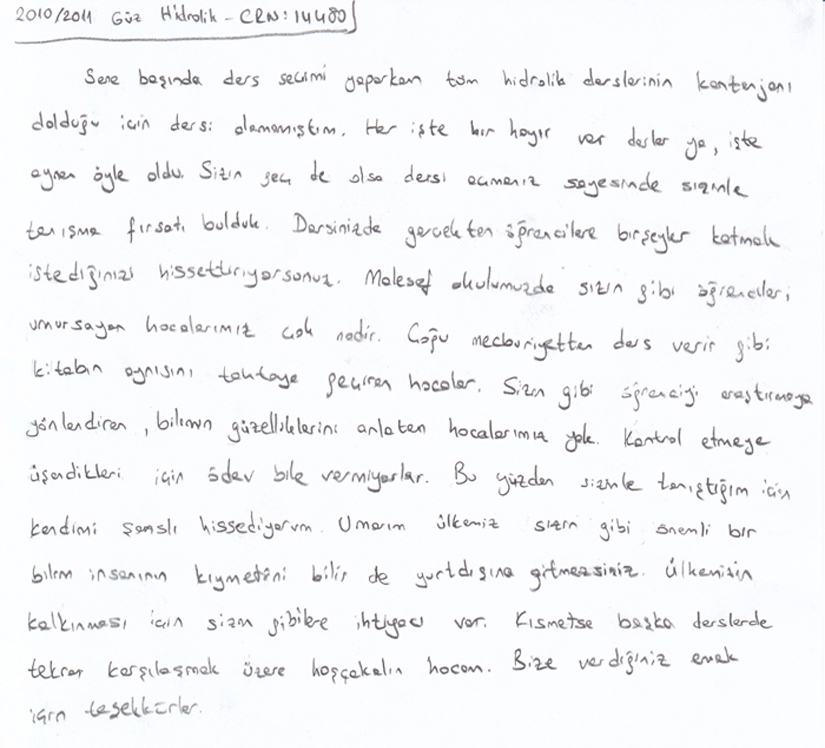 2010/2011 Güz Hidrolik - CRN: 14480
Sene başında ders seçimi yaparken tüm hidrolik derslerinin kontenjanı
dolduğu için dersi alamamıştım. Her işte bir hayır var derler ya, işte
aynen öyle oldu. Sizin geç de olsa dersi açmanız sayesinde sizinle
tanışma fırsatı bulduk. Dersinizde gerçekten öğrencilere birşeyler katmak
istediğinizi hissettiriyorsunuz. Malesef okulumuzda sizin gibi öğrencileri
umursayan hocalarımız çok nadir. Çoğu mecburiyetten ders verir gibi
kitabın aynısını tahtaya geçiren hocalar. Sizin gibi öğrenciyi araştırmaya
yönlendiren, bilimin güzelliklerini anlatan hocalarımız yok. Kontrol etmeye
üşendikleri için ödev bile vermiyorlar. Bu yüzden sizinle tanıştığım için
kendimi şanslı hissediyorum. Umarım ülkemiz sizin gibi önemli bir
bilim insanının kıymetini bilir de yurtdışına gitmezsiniz. Ülkemizin
kalkınması için sizin gibilere ihtiyacı var. Kısmetse başka derslerde
tekrar karşılaşmak üzere hoşçakalın hocam. Bize verdiğiniz emek
için teşekkürler.